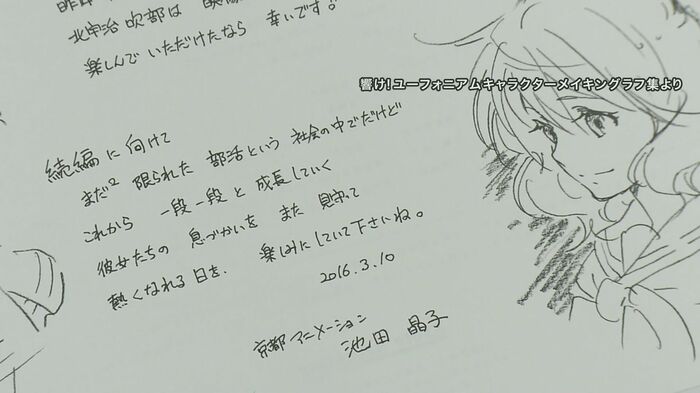 北宇治吹部は
楽しんで いただけたなら 幸いです。
響け!ユーフォニアムキャラクターメイキングラフ集より
続編に向けて
まだ2 限られた 部活という 社会の中でだけど
これから 一段一段と 成長していく
彼女たちの 息づかいを また 見守って
熱くなれる日を. 楽しみにしていて下さいね。
2016.3.10
京都アニメーション
池田 晶子